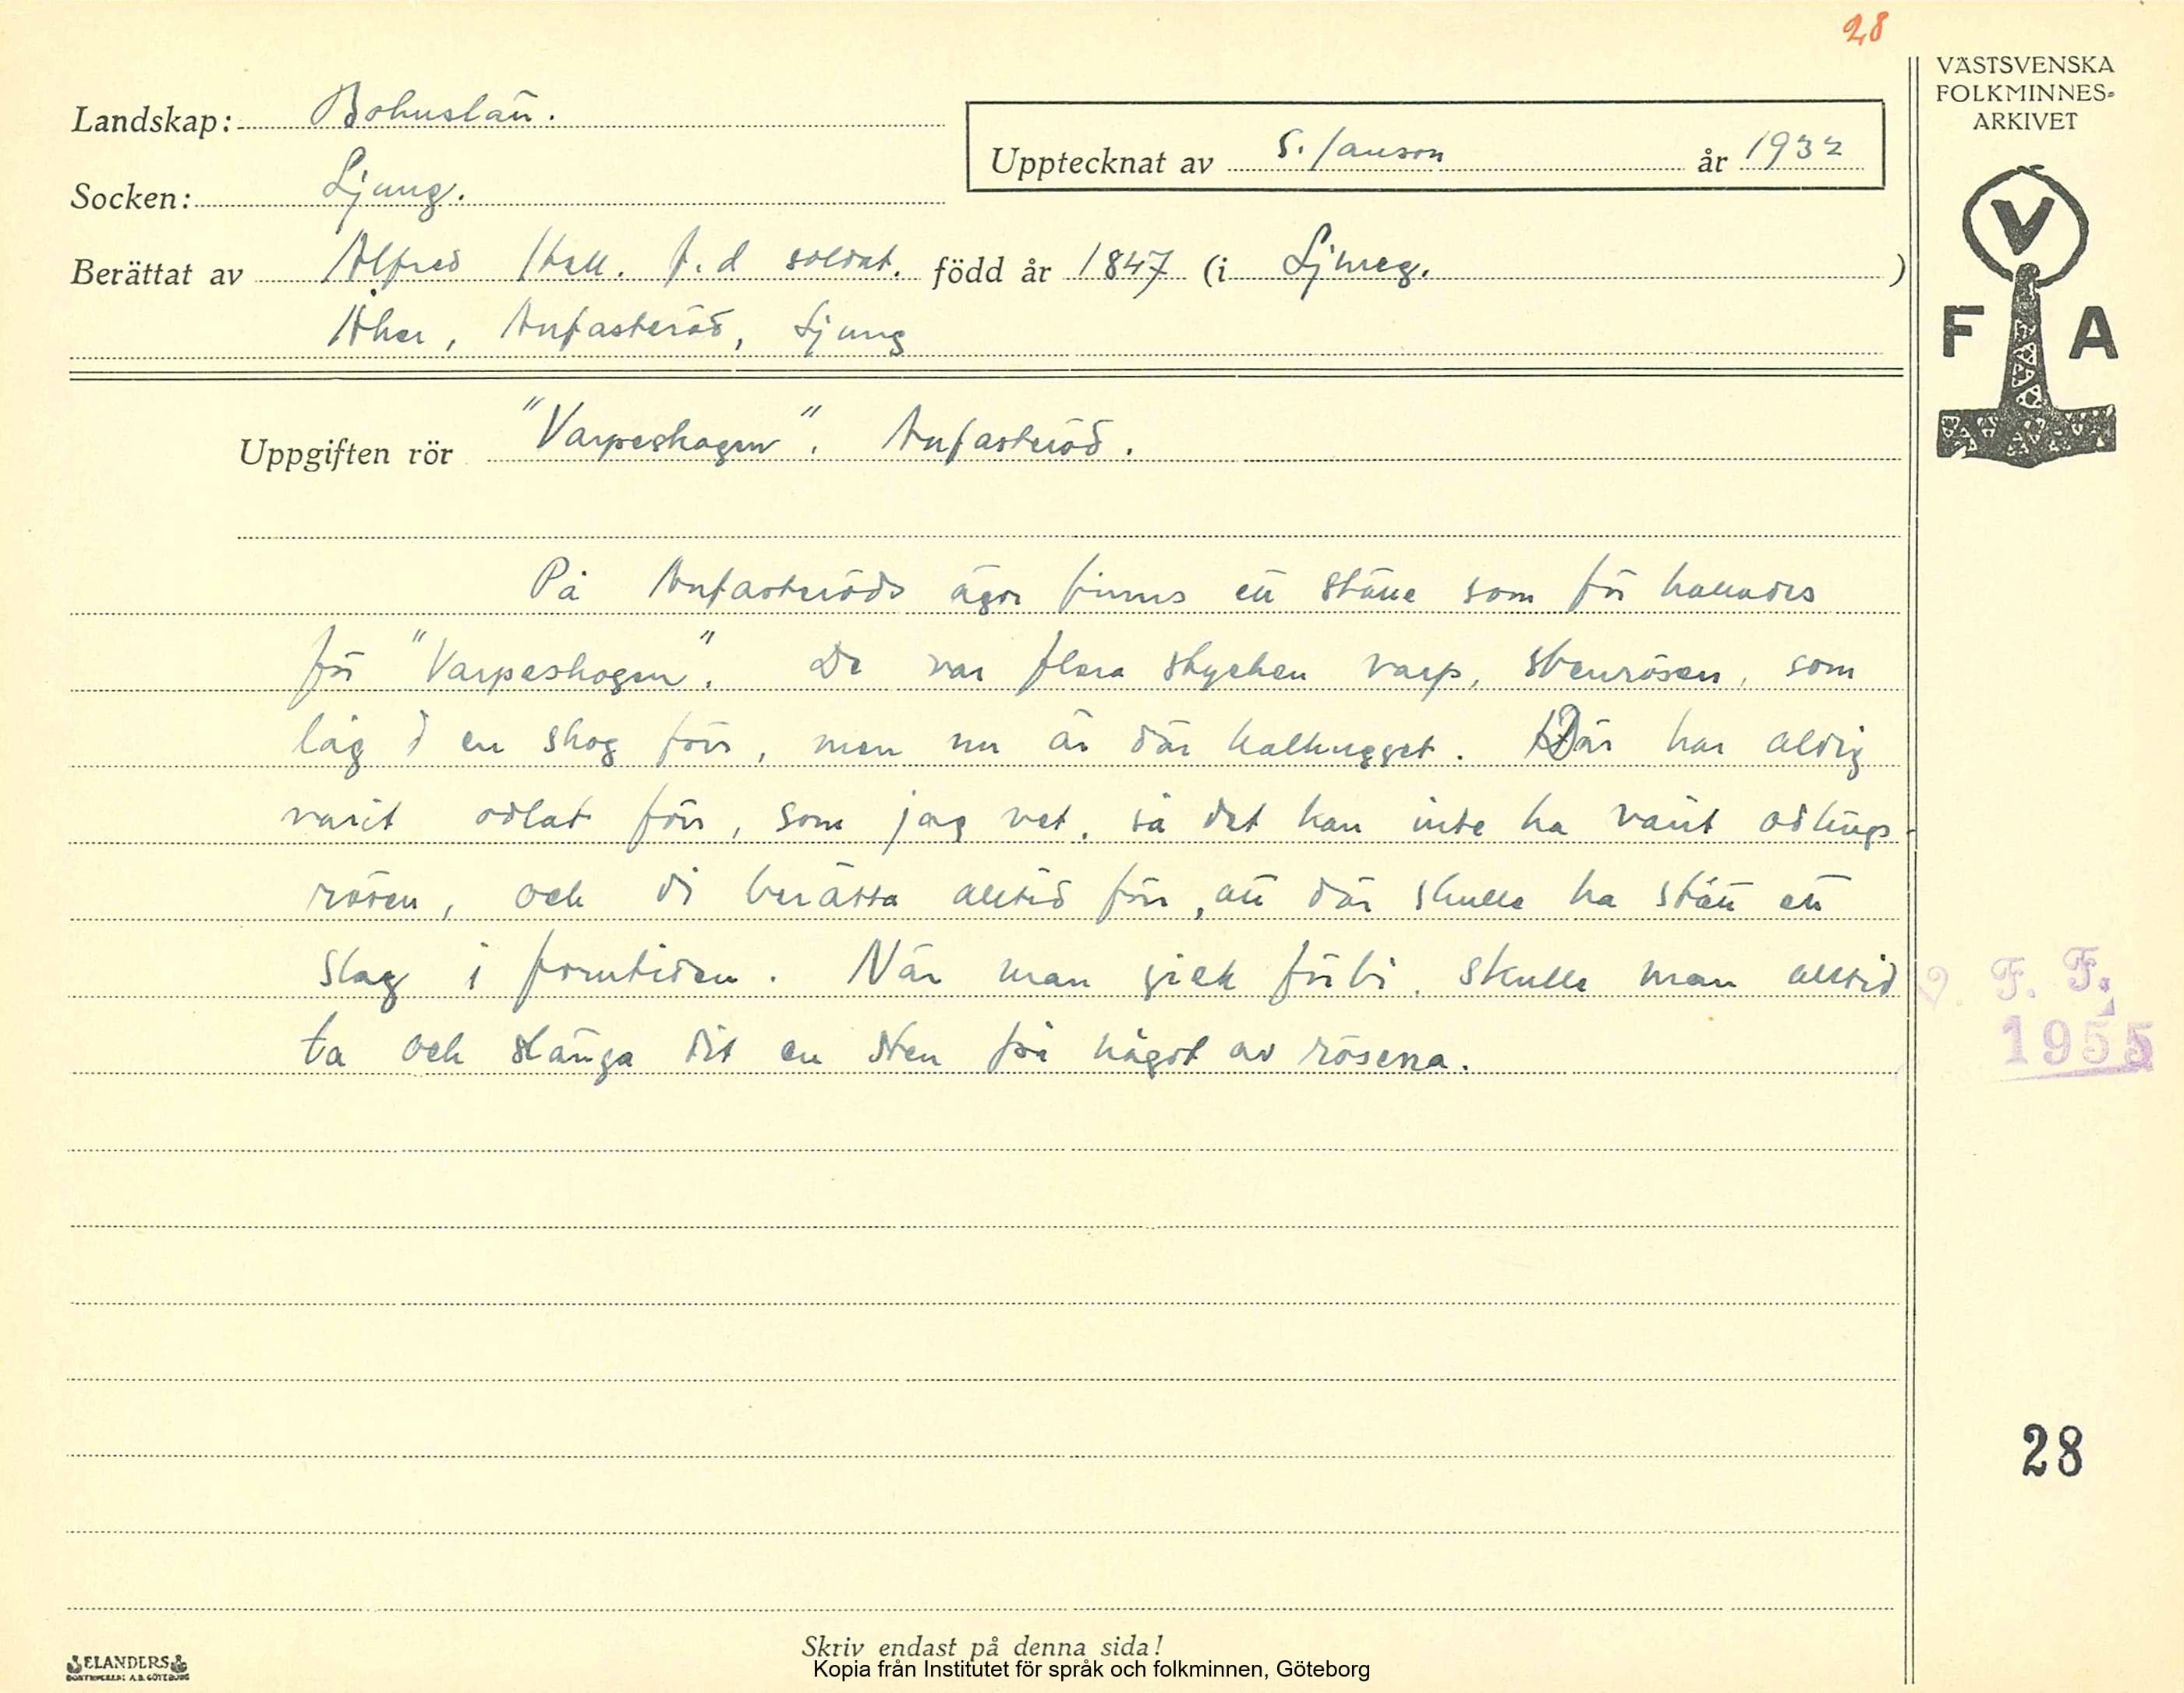 28
VÄSTSVENSKA
FOLKMINNES-
ARKIVET
Landskap: Bohuslän.
Upptecknat av S. Janson år 1932
Socken: Ljung.
Berättat av Alfred Hall. f.d soldat. född år 1847 (i Ljung. )
Åker, Anfasteröd, Ljung
V
F A
Uppgiften rör "Varpeskogen". Anfasteröd.
På Anfasteröds ägor finns ett ställe som för kallades
för "Varpeskogen". De var flera stycken varp, stenrösen, som
låg i en skog förr, men nu är där kalhugget. Där har aldrig
varit odlat förr, som jag vet, så det kan inte ha varit odlings-
rösen, och di berätta alltid förr, att där skulle ha stått ett
slag i forntiden. När man gick förbi, skulle man alltid
ta och slänga dit en sten på något av rösena.
V. F. F.
1955
28
Skriv endast på denna sida!
ELANDERS
BOKTRYCKERI A.B. GÖTEBORG
Kopia från Institutet för språk och folkminnen, Göteborg